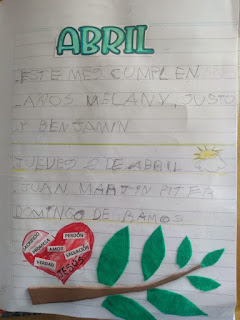 ABRIL
ESTE MES CUMPLEN
AÑOS MELANY, JUSTO
Y BENJAMIN
JUEVES 2 DE ABRIL
JUAN MARTIN PITER
DOMINGO DE RAMOS
PERDÓN
AMOR
SALVACIÓN
VERDAD
JESÚS